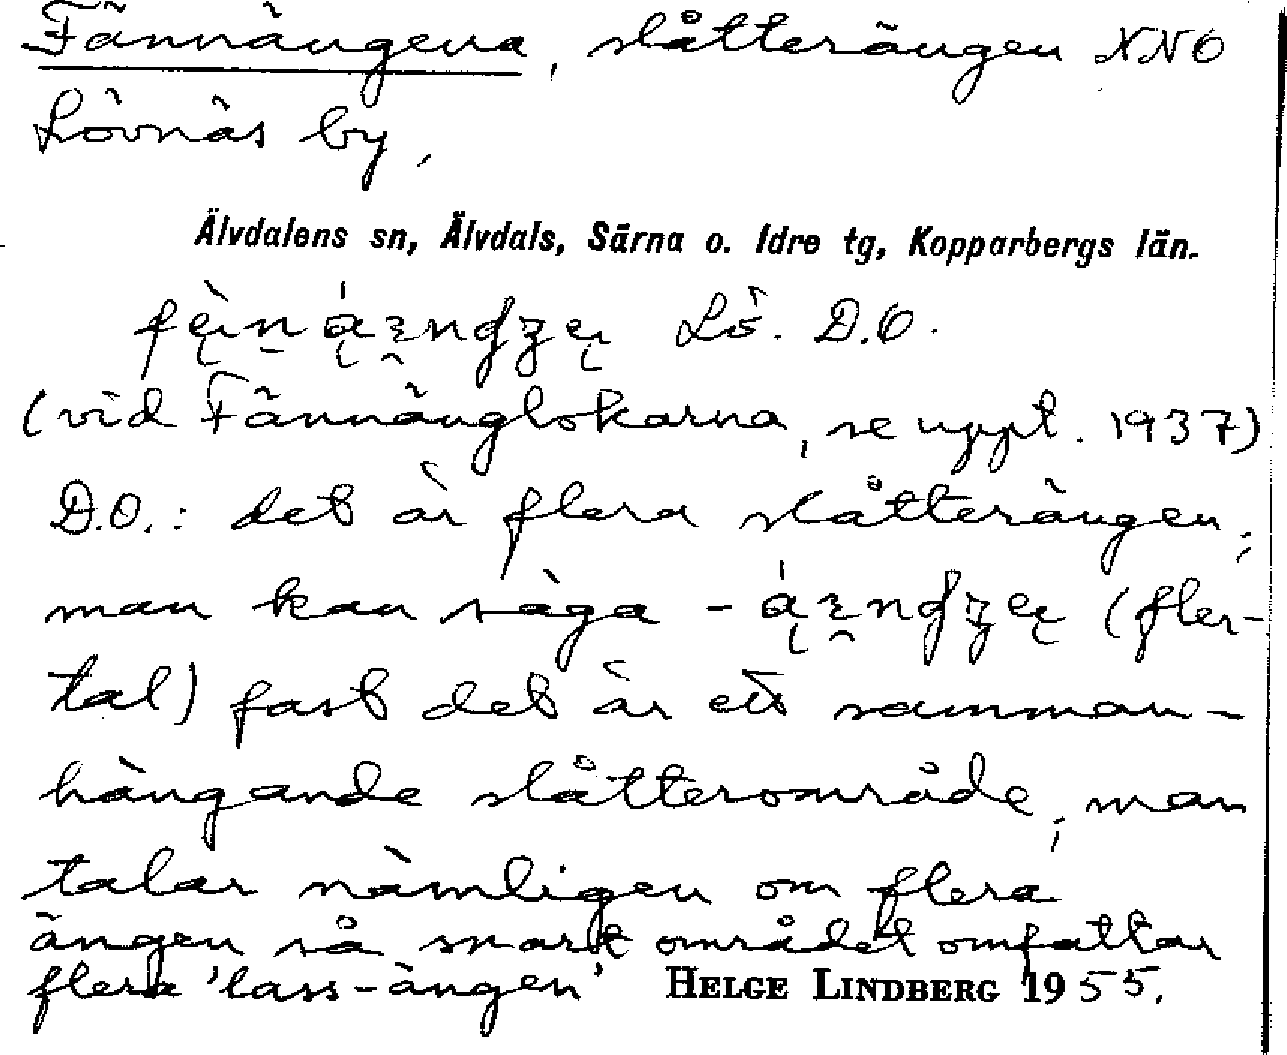 Fännängena, slåtterängen NNO
Lövnäs by,
Älvdalens sn, Älvdals, Särna o. Idre tg, Kopparbergs län.
Lö. D.O.
(vid Fännänglokarna, se uppt. 1937)
D.O.: det är flera slåtterängen;
man kan säga - (fler-
tal) fast det är ett samman-
hängande slåtterområde; man
talar nämligen om flera
ängen så snart området omfattar
flera 'lass-ängen' HELGE LINDBERG 1955.